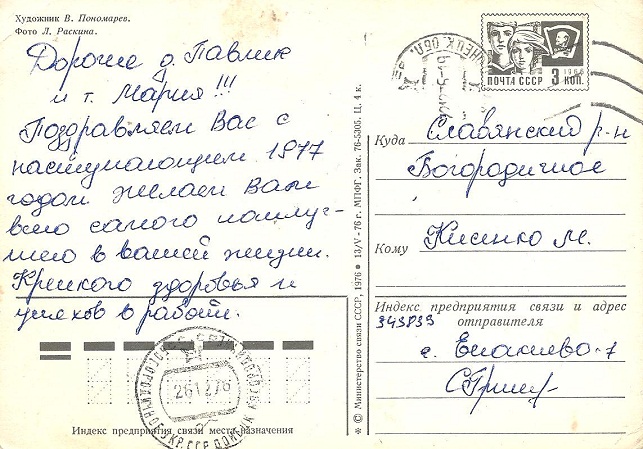 Художник В. Пономарев.
Фото Л. Раскина.
Дорогие д. Павлик
и т. Мария!!!
Поздравляем Вас с
наступающим 1977
годом желаем Вам
всего самого наилуч-
шего в вашей жизни.
Крепкого здоровья и
успехов в работе.
Индекс предприятия связи места назначения
261276
* © Министерство связи СССР, 1976 * 13/V-76 г. МПФГ. Зак. 76-5305. Ц. 4 к.
1966
ПОЧТА СССР 3 КОП.
Куда Славянский р-н
Богородичное
Кому Кисенко М.
Индекс предприятия связи и адрес
343839 отправителя
г. Енакиево-7